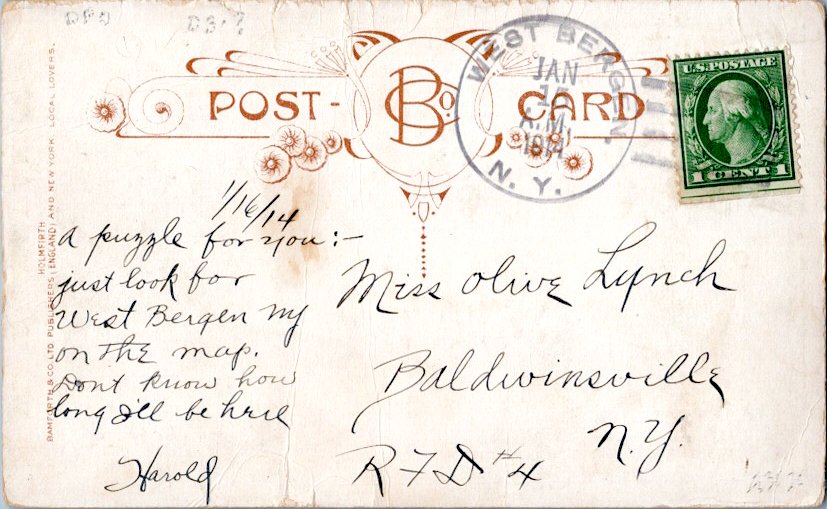 DPO
D3-7
POST-
B Co
CARD
WEST BERGEN,
JAN
A.M.
1914
N. Y.
U.S. POSTAGE
1 CENT 1
HOLMFIRTH
BAMFORTH & CO. LTD. PUBLISHERS (ENGLAND) AND NEW YORK LOCAL LOVERS.
1/16/14
A puzzle for you:-
just look for
West Bergen NY
on the map.
Dont know how
long I'll be here
Harold
Miss Olive Lynch
Baldwinsville
N.Y.
R F D #4